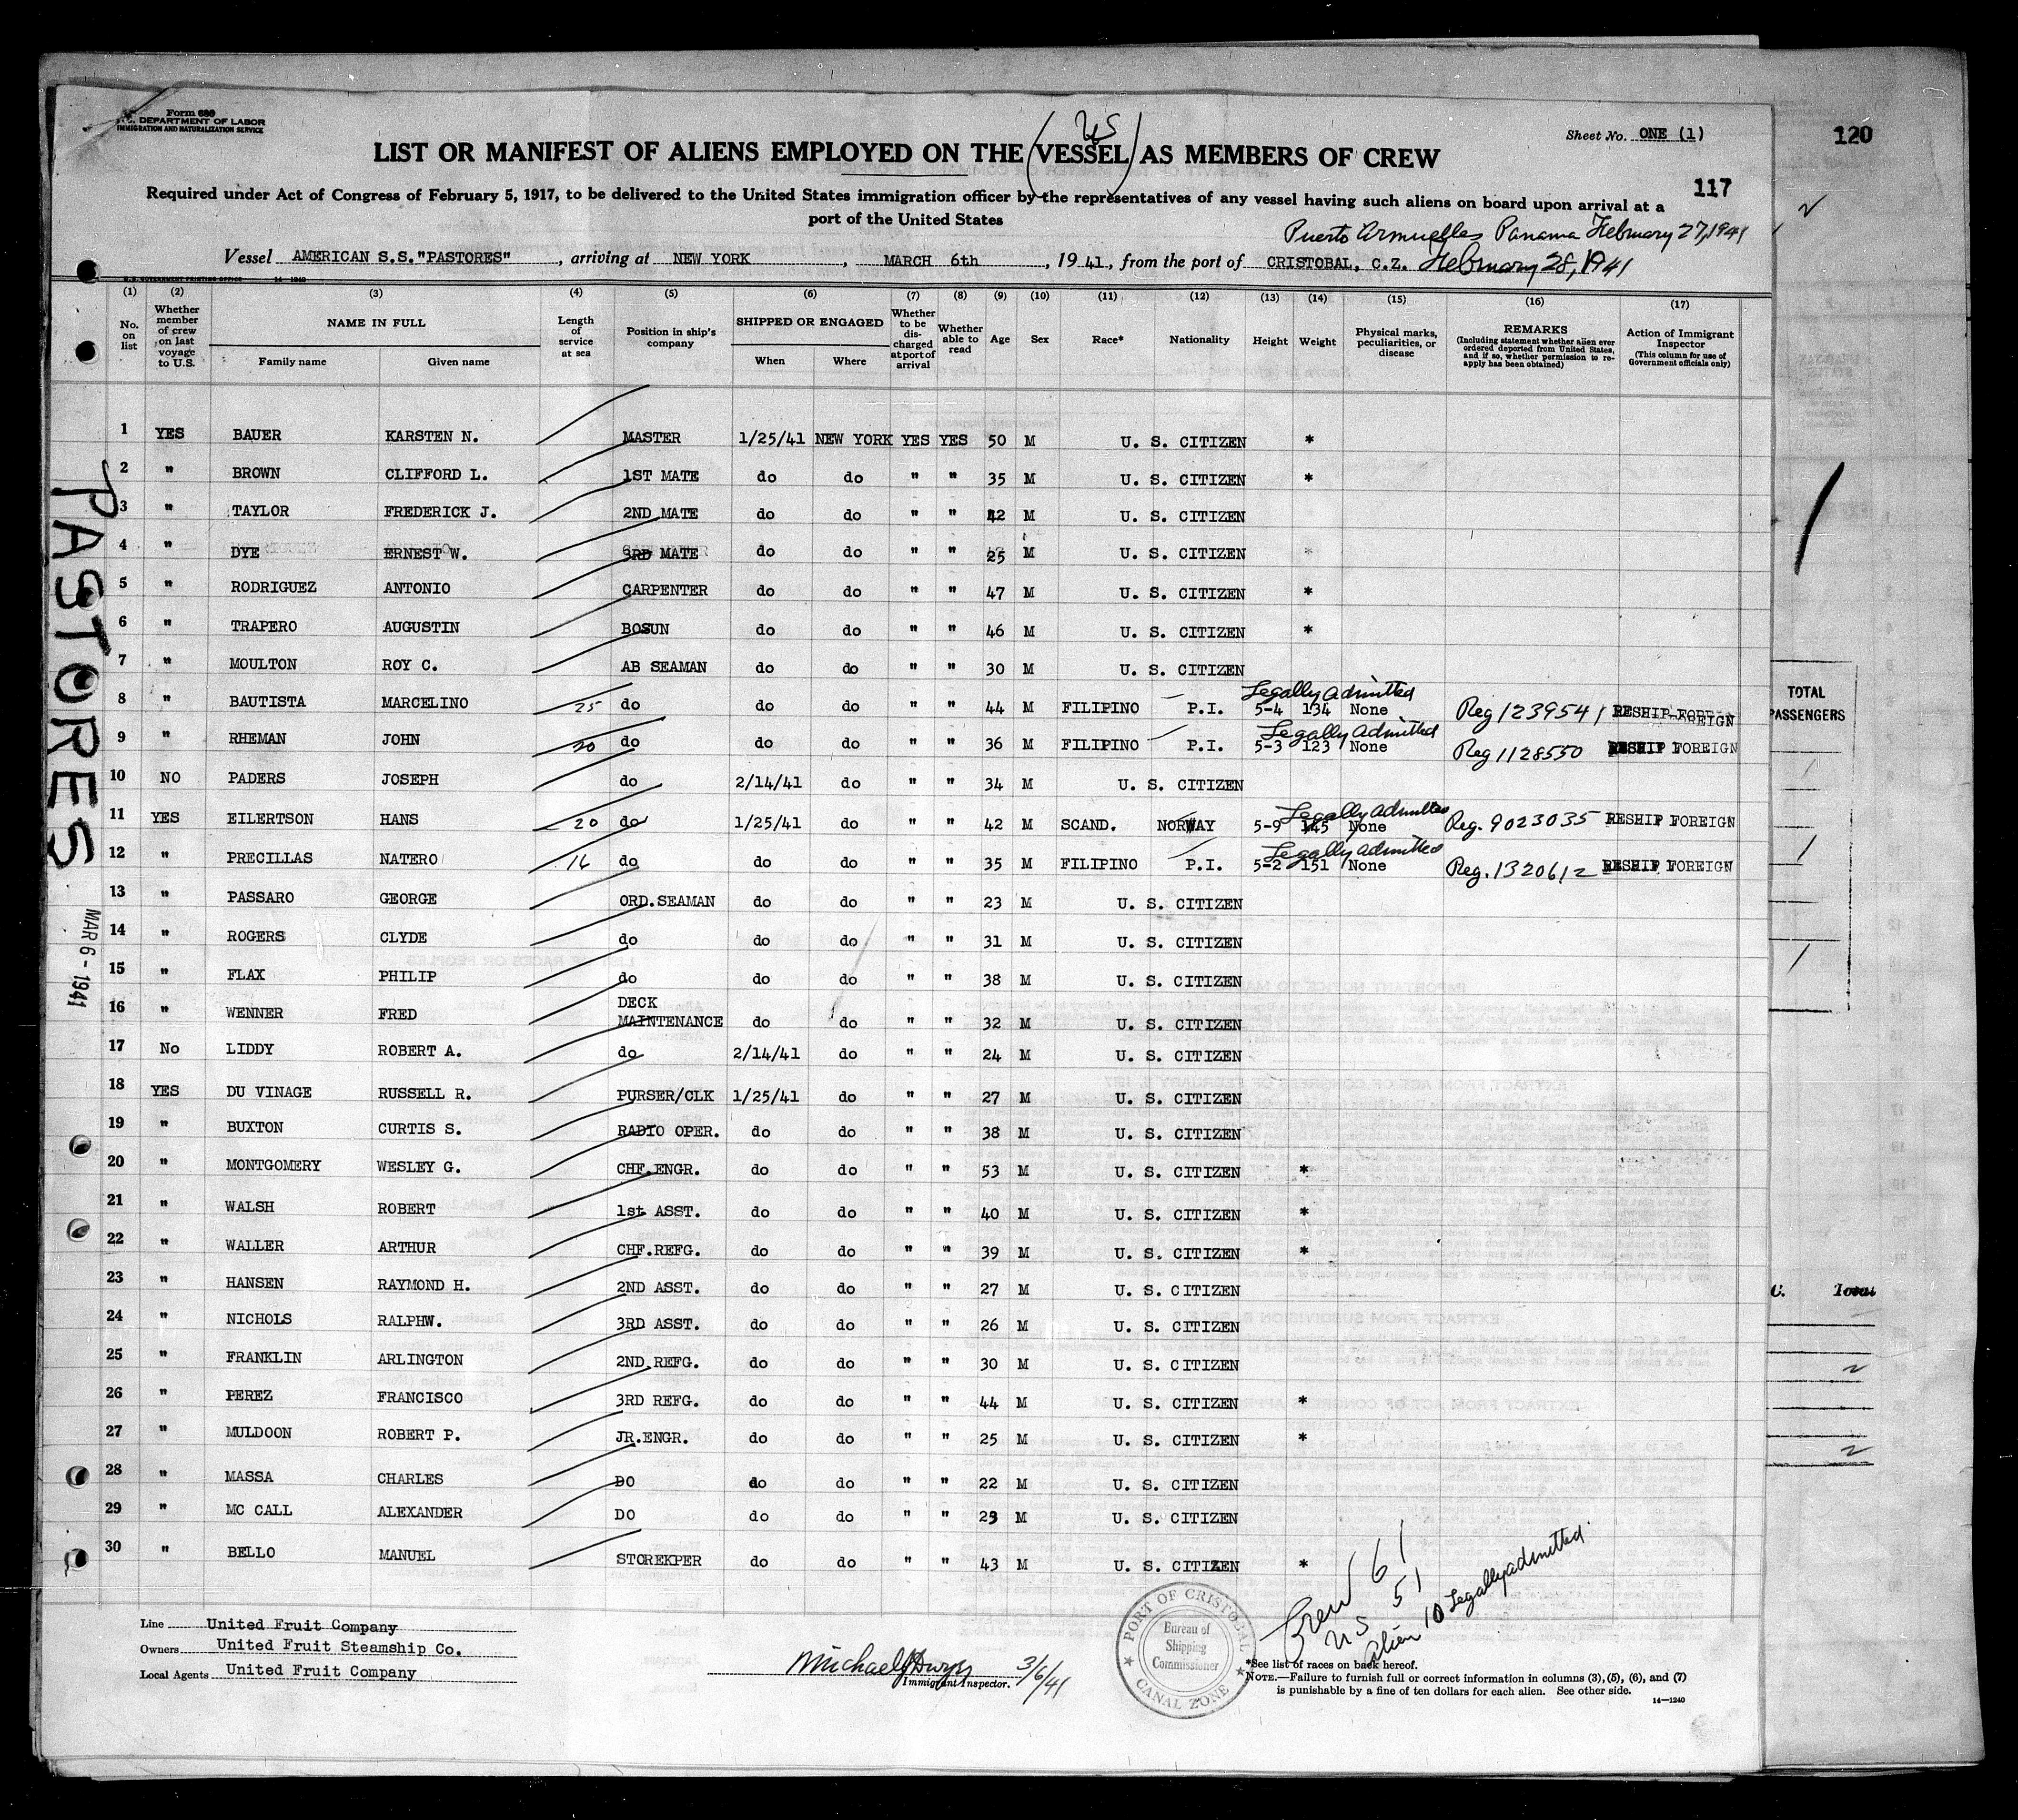 Form 680
U.S. DEPARTMENT OF LABOR
IMMIGRATION AND NATURALIZATION SERVICE
Sheet No. ONE (1)
120
US
LIST OR MANIFEST OF ALIENS EMPLOYED ON THE (VESSEL) AS MEMBERS OF CREW
117
Required under Act of Congress of February 5, 1917, to be delivered to the United States immigration officer by the representatives of any vessel having such aliens on board upon arrival at a
port of the United States
Puerto Armuelles Panama February 27, 1941
Vessel AMERICAN S.S."PASTORES", arriving at NEW YORK, MARCH 6th, 1941, from the port of CRISTOBAL, C.Z. February 28, 1941
U.S. GOVERNMENT PRINTING OFFICE 14-1240
(1) (2) (3) (4) (5) (6) (7) (8) (9) (10) (11) (12) (13) (14) (15) (16) (17)
No. on list
Whether member of crew on last voyage to U.S.
NAME IN FULL
Family name Given name
Length of service at sea
Position in ship's company
SHIPPED OR ENGAGED
When Where
Whether to be discharged at port of arrival
Whether able to read
Age Sex Race* Nationality Height Weight
Physical marks, peculiarities, or disease
REMARKS
(Including statement whether alien ever ordered deported from United States, and if so, whether permission to reapply has been obtained)
Action of Immigrant Inspector
(This column for use of Government officials only)
1 YES BAUER KARSTEN N. MASTER 1/25/41 NEW YORK YES YES 50 M U. S. CITIZEN *
2 " BROWN CLIFFORD L. 1ST MATE do do " " 35 M U. S. CITIZEN *
3 " TAYLOR FREDERICK J. 2ND MATE do do " " 42 M U. S. CITIZEN
4 " DYE ERNEST W. 3RD MATE do do " " 25 M U. S. CITIZEN *
5 " RODRIGUEZ ANTONIO CARPENTER do do " " 47 M U. S. CITIZEN *
6 " TRAPERO AUGUSTIN BOSUN do do " " 46 M U. S. CITIZEN *
7 " MOULTON ROY C. AB SEAMAN do do " " 30 M U. S. CITIZEN
Legally admitted
8 " BAUTISTA MARCELINO 25 do do do " " 44 M FILIPINO P.I. 5-4 134 None Reg 1239541 RESHIP FOREIGN
Legally Admitted
9 " RHEMAN JOHN 20 do do do " " 36 M FILIPINO P.I. 5-3 123 None Reg 1128550 RESHIP FOREIGN
10 NO PADERS JOSEPH do 2/14/41 do " " 34 M U. S. CITIZEN
Legally admitted
11 YES EILERTSON HANS 20 do 1/25/41 do " " 42 M SCAND. NORWAY 5-9 145 None Reg. 9023035 RESHIP FOREIGN
Legally admitted
12 " PRECILLAS NATERO 16 do do do " " 35 M FILIPINO P.I. 5-2 151 None Reg. 1320612 RESHIP FOREIGN
13 " PASSARO GEORGE ORD.SEAMAN do do " " 23 M U. S. CITIZEN
14 " ROGERS CLYDE do do do " " 31 M U. S. CITIZEN
15 " FLAX PHILIP do do do " " 38 M U. S. CITIZEN
16 " WENNER FRED DECK MAINTENANCE do do " " 32 M U. S. CITIZEN
17 No LIDDY ROBERT A. do 2/14/41 do " " 24 M U. S. CITIZEN
18 YES DU VINAGE RUSSELL R. PURSER/CLK 1/25/41 do " " 27 M U. S. CITIZEN
19 " BUXTON CURTIS S. RADIO OPER. do do " " 38 M U. S. CITIZEN
20 " MONTGOMERY WESLEY G. CHF.ENGR. do do " " 53 M U. S. CITIZEN *
21 " WALSH ROBERT 1st ASST. do do " " 40 M U. S. CITIZEN *
22 " WALLER ARTHUR CHF.REFG. do do " " 39 M U. S. CITIZEN *
23 " HANSEN RAYMOND H. 2ND ASST. do do " " 27 M U. S. CITIZEN
24 " NICHOLS RALPHW. 3RD ASST. do do " " 26 M U. S. CITIZEN
25 " FRANKLIN ARLINGTON 2ND REFG. do do " " 30 M U. S. CITIZEN
26 " PEREZ FRANCISCO 3RD REFG. do do " " 44 M U. S. CITIZEN *
27 " MULDOON ROBERT P. JR.ENGR. do do " " 25 M U. S. CITIZEN *
28 " MASSA CHARLES DO do do " " 22 M U. S. CITIZEN
29 " MC CALL ALEXANDER DO do do " " 23 M U. S. CITIZEN
30 " BELLO MANUEL STOREKPER do do " " 43 M U. S. CITIZEN *
PASTORES
MAR 6 - 1941
TOTAL
PASSENGERS
C. Total
Crew 61
US 51
Alien 10 Legally admitted
Line United Fruit Company
Owners United Fruit Steamship Co.
Local Agents United Fruit Company
Michael J Dwyer 3/6/41
Immigrant Inspector.
PORT OF CRISTOBAL
Bureau of
Shipping
Commissioner
CANAL ZONE
*See list of races on back hereof.
NOTE.—Failure to furnish full or correct information in columns (3), (5), (6), and (7)
is punishable by a fine of ten dollars for each alien. See other side.
14-1240